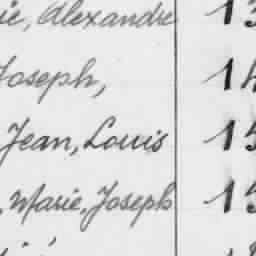 ie, Alexandre 13
Joseph, 14
Jean, Louis 15
, Marie, Joseph 15